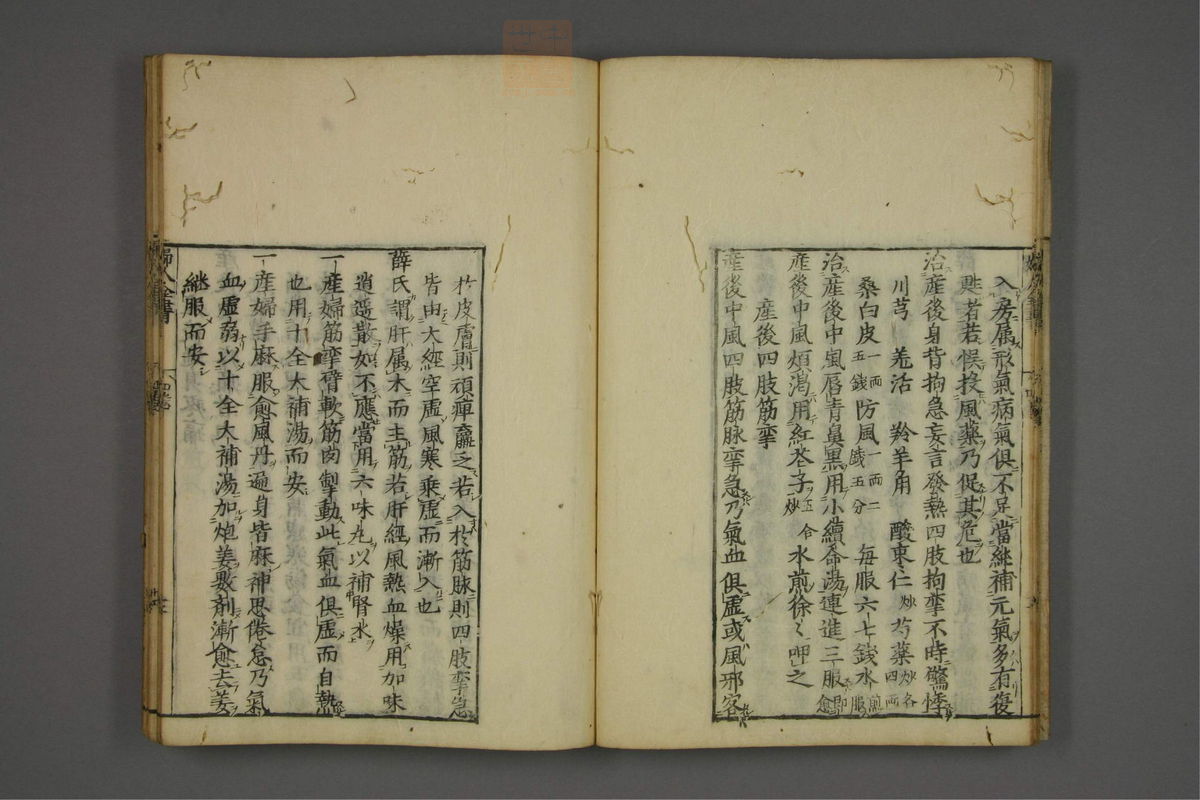 入房属形氣病氣俱不足當純補元氣多有復
甦者若悞投風藥乃促其危也
治産後身背拘急妄言發熱四肢拘攣不時驚悸
川芎 羗活 羚羊角 酸棗仁炒 芍藥炒各四両
桑白皮一両五銭 防風一両二銭五分 毎服六七銭水煎服
治産後中風唇青鼻黒用小續命湯連進三服即愈
産後中風煩渇用紅花子五合炒水煎徐〻呷之
産後四肢筋攣
産後中風四肢筋脉攣急乃氣血俱虚或風邪客
於皮膚則頑痺羸乏若入於筋脉則四肢攣急
皆由大經空虚風寒乗虚而漸入也
薛氏謂肝属木而主筋若肝經風熱血燥用加味
逍遥散如不應當用六味丸以補腎水
一産婦筋攣臂軟筋肉掣動此氣血俱虚而自熱
也用十全大補湯而安
一産婦手麻服愈風丹遍身皆麻神思倦怠乃氣
血虚弱以十全大補湯加炮姜數剤漸愈去姜
継服而安
婦人全書